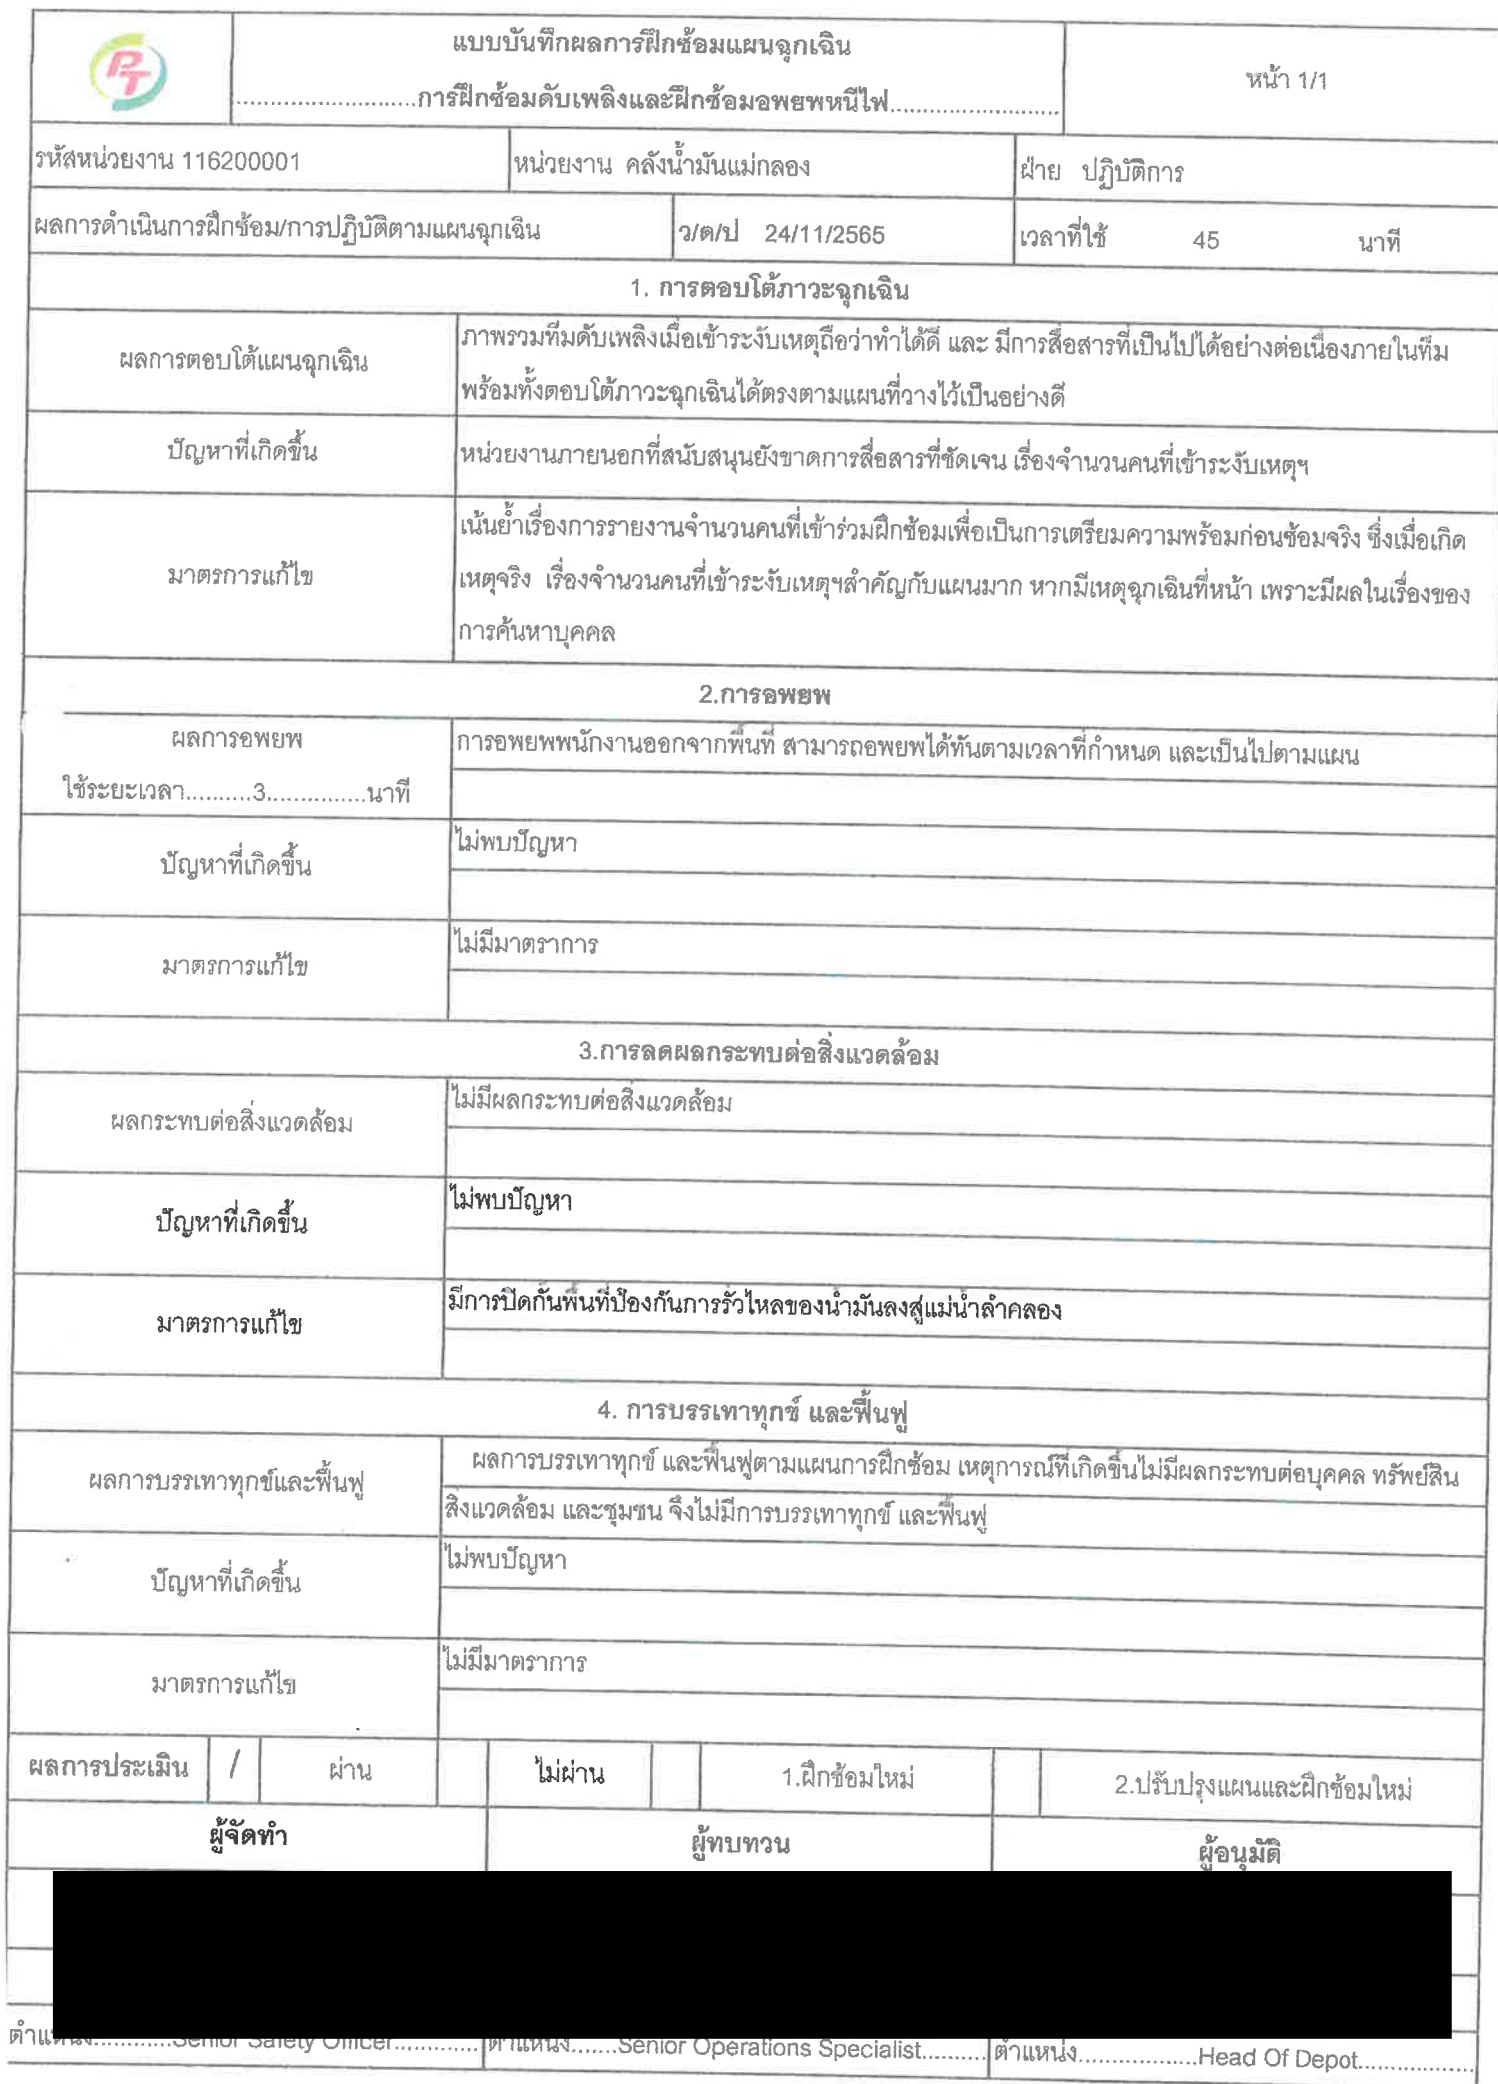 PT
แบบบันทึกผลการฝึกซ้อมแผนฉุกเฉิน
..........................การฝึกซ้อมดับเพลิงและฝึกซ้อมอพยพหนีไฟ........................
หน้า 1/1
รหัสหน่วยงาน 116200001 หน่วยงาน คลังน้ำมันแม่กลอง ฝ่าย ปฏิบัติการ
ผลการดำเนินการฝึกซ้อม/การปฏิบัติตามแผนฉุกเฉิน ว/ด/ป 24/11/2565 เวลาที่ใช้ 45 นาที
1. การตอบโต้ภาวะฉุกเฉิน
ผลการตอบโต้แผนฉุกเฉิน
ภาพรวมทีมดับเพลิงเมื่อเข้าระงับเหตุถือว่าทำได้ดี และ มีการสื่อสารที่เป็นไปได้อย่างต่อเนื่องภายในทีม
พร้อมทั้งตอบโต้ภาวะฉุกเฉินได้ตรงตามแผนที่วางไว้เป็นอย่างดี
ปัญหาที่เกิดขึ้น
หน่วยงานภายนอกที่สนับสนุนยังขาดการสื่อสารที่ชัดเจน เรื่องจำนวนคนที่เข้าระงับเหตุฯ
มาตรการแก้ไข
เน้นย้ำเรื่องการรายงานจำนวนคนที่เข้าร่วมฝึกซ้อมเพื่อเป็นการเตรียมความพร้อมก่อนซ้อมจริง ซึ่งเมื่อเกิด
เหตุจริง เรื่องจำนวนคนที่เข้าระงับเหตุฯสำคัญกับแผนมาก หากมีเหตุฉุกเฉินที่หน้า เพราะมีผลในเรื่องของ
การค้นหาบุคคล
2.การอพยพ
ผลการอพยพ
ใช้ระยะเวลา..........3...............นาที
การอพยพพนักงานออกจากพื้นที่ สามารถอพยพได้ทันตามเวลาที่กำหนด และเป็นไปตามแผน
ปัญหาที่เกิดขึ้น
ไม่พบปัญหา
มาตรการแก้ไข
ไม่มีมาตราการ
3.การลดผลกระทบต่อสิ่งแวดล้อม
ผลกระทบต่อสิ่งแวดล้อม
ไม่มีผลกระทบต่อสิ่งแวดล้อม
ปัญหาที่เกิดขึ้น
ไม่พบปัญหา
มาตรการแก้ไข
มีการปิดกั้นพื้นที่ป้องกันการรั่วไหลของน้ำมันลงสู่แม่น้ำลำคลอง
4. การบรรเทาทุกข์ และฟื้นฟู
ผลการบรรเทาทุกข์และฟื้นฟู
ผลการบรรเทาทุกข์ และฟื้นฟูตามแผนการฝึกซ้อม เหตุการณ์ที่เกิดขึ้นไม่มีผลกระทบต่อบุคคล ทรัพย์สิน
สิ่งแวดล้อม และชุมชน จึงไม่มีการบรรเทาทุกข์ และฟื้นฟู
ปัญหาที่เกิดขึ้น
ไม่พบปัญหา
มาตรการแก้ไข
ไม่มีมาตราการ
ผลการประเมิน / ผ่าน ไม่ผ่าน 1.ฝึกซ้อมใหม่ 2.ปรับปรุงแผนและฝึกซ้อมใหม่
ผู้จัดทำ ผู้ทบทวน ผู้อนุมัติ
ตำแหน่ง............Senior Safety Officer............ ตำแหน่ง.......Senior Operations Specialist.......... ตำแหน่ง.................Head Of Depot.................